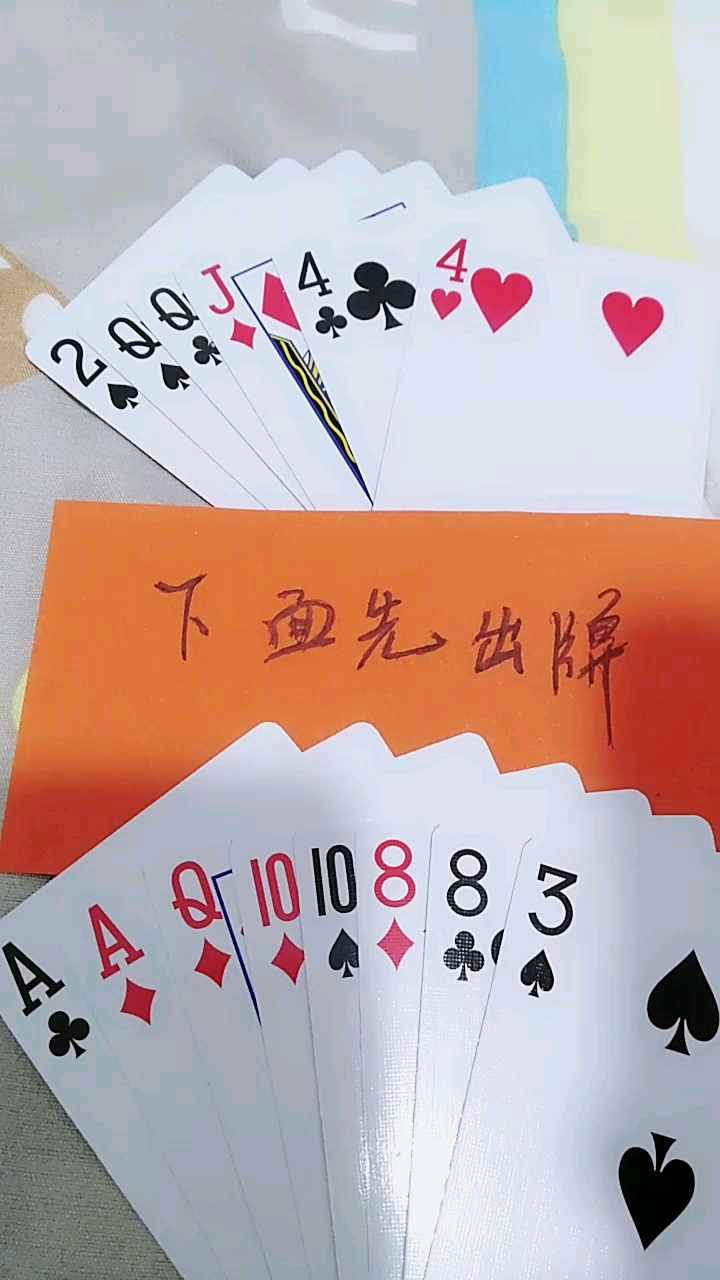 2 Q Q J 4 4
下面先出牌
A A Q 10 10 8 8 3